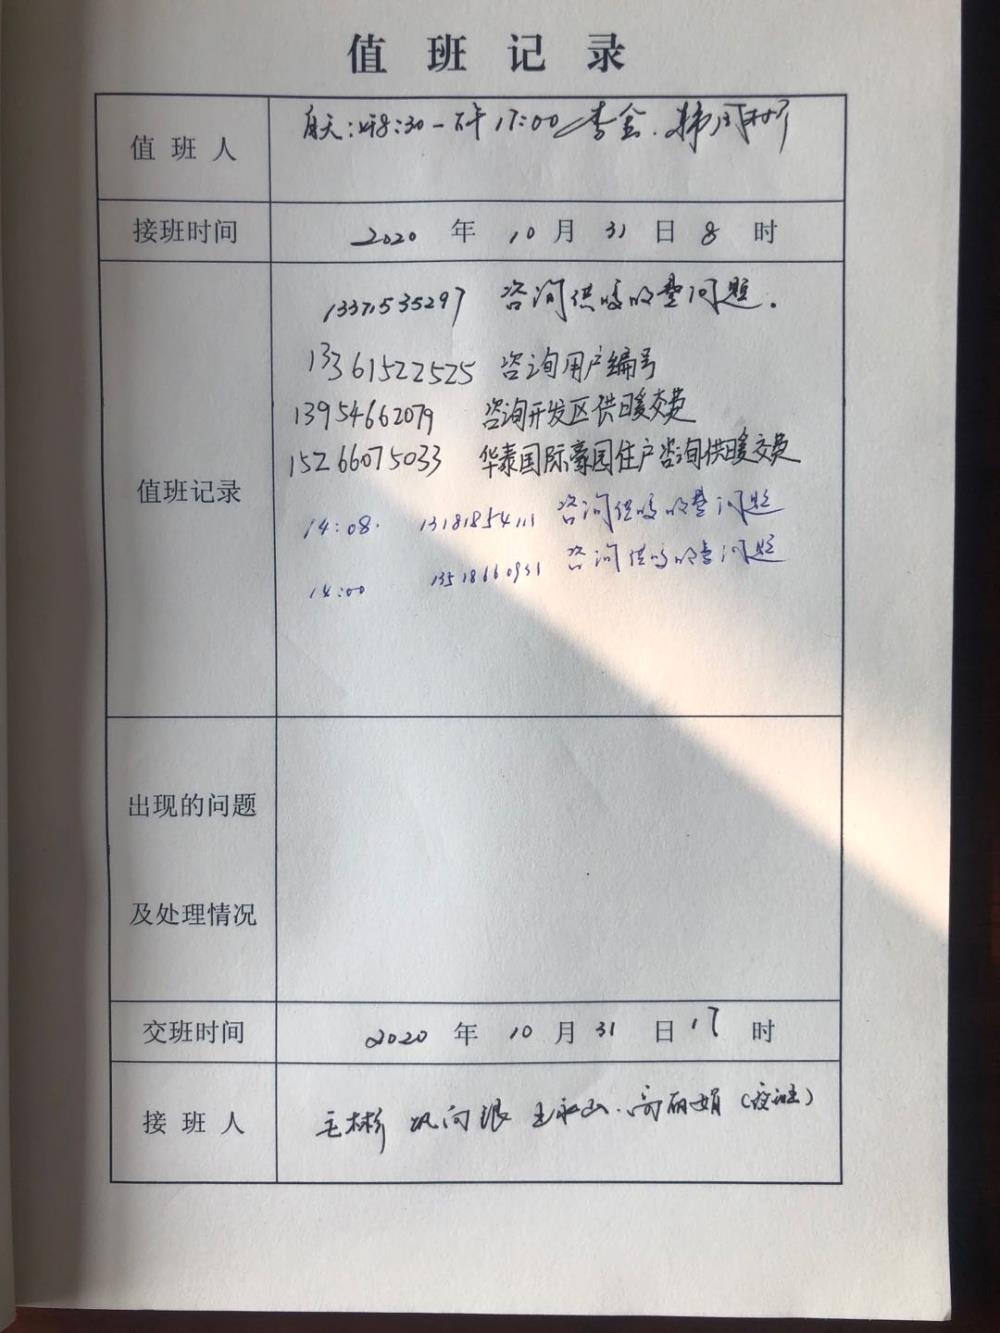 值班记录
值班人
白天:8:30-下午17:00 李会.韩
接班时间
2020年10月31日8时
值班记录
13371535297 咨询供暖收费问题.
13361522525 咨询用户编号
13954662079 咨询开发区供暖交费
15266075033 华泰国际豪园住户咨询供暖交费
14:08. 13181854111 咨询供暖收费问题
14:00 13518660951 咨询供暖收费问题
出现的问题
及处理情况
交班时间
2020年10月31日17时
接班人
毛彬 巩向银 王永山.高丽娟(夜班)